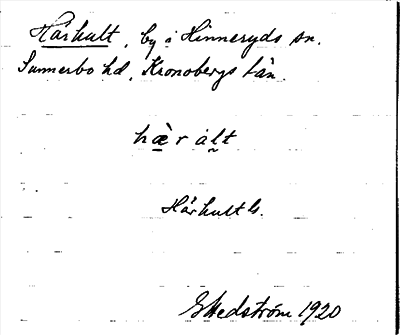 Hårhult, by i Hinneryds sn.
Sunnerbo hd, Kronobergs län.
hæ̀r ål̯t
Hårhult h.
G Hedström 1920